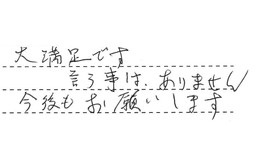 大満足です
言う事は、ありません
今後もお願いします